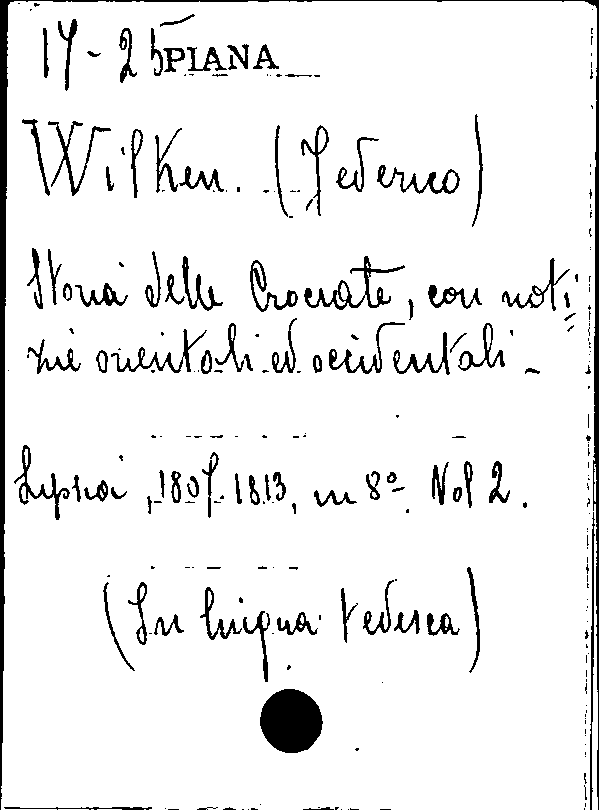 14-25 PIANA
Wilken. (Federico)
Storia delle Crociate, con noti
zie orientali ed occidentali -
Lipsia, 1807. 1813, in 8º. Vol 2.
(In lingua tedesca)